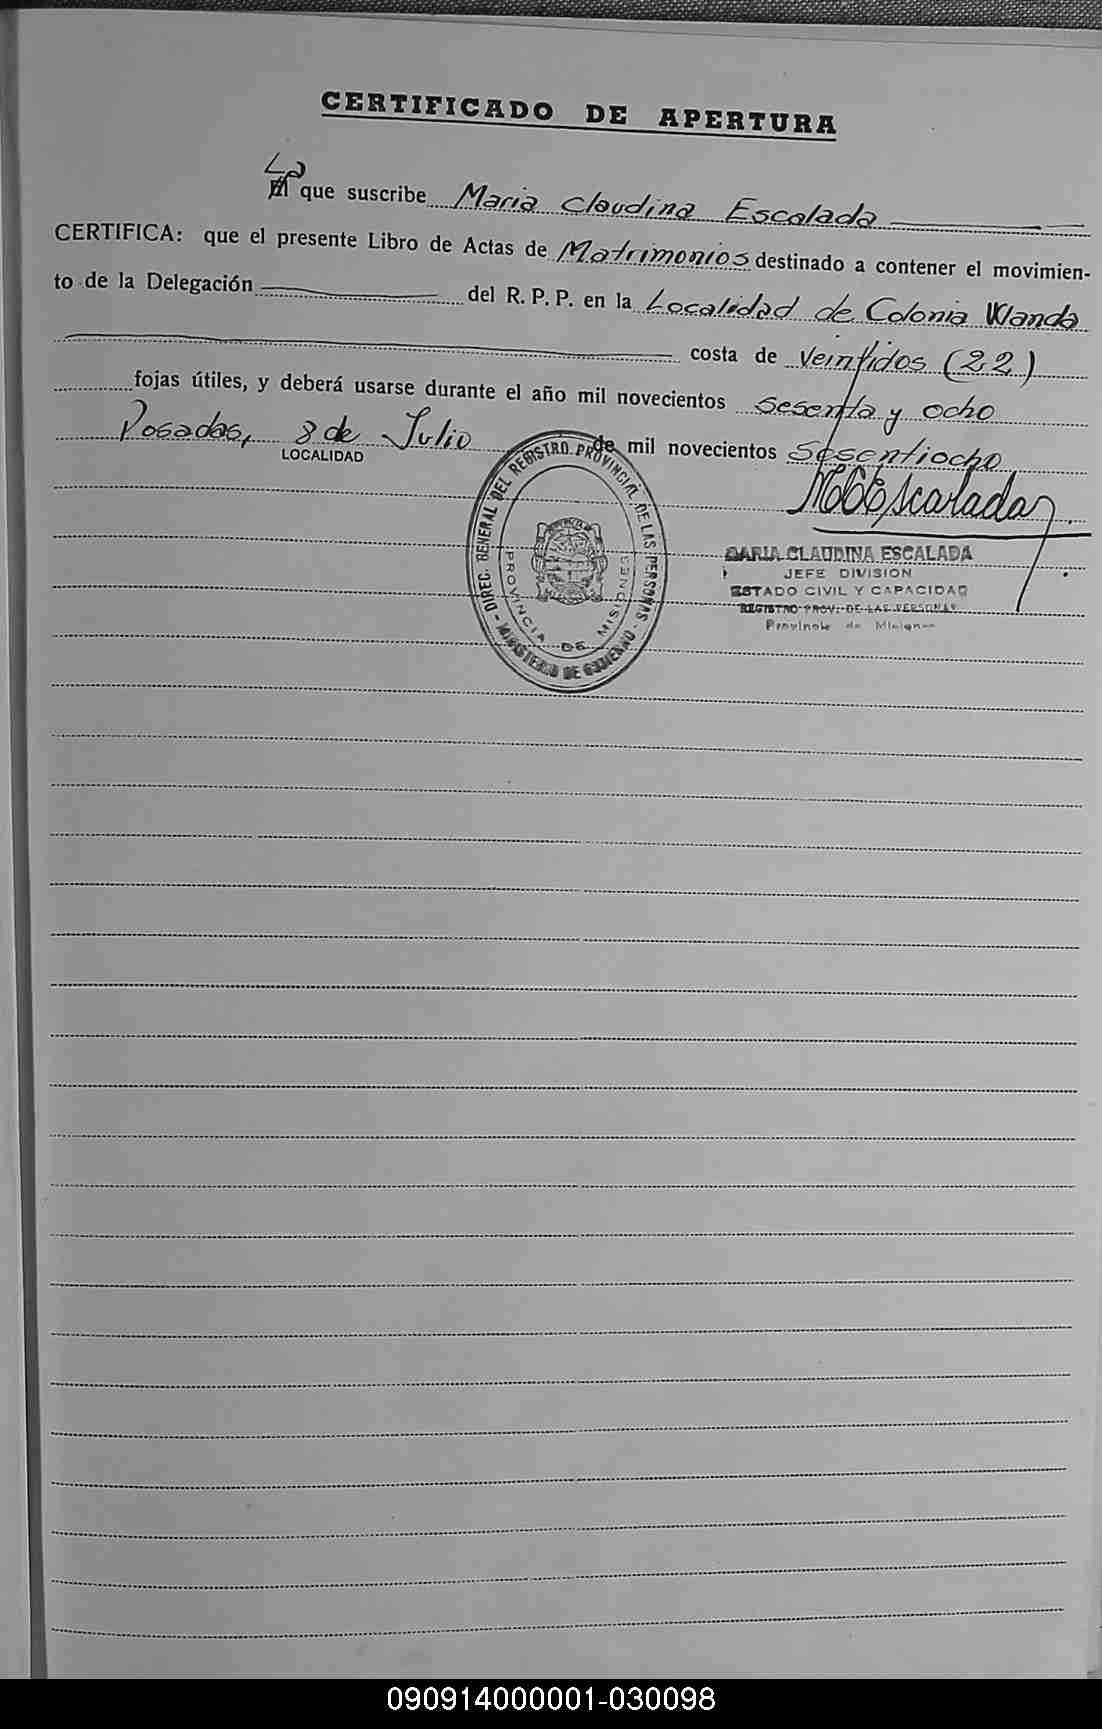 CERTIFICADO DE APERTURA
La
El que suscribe Maria Claudina Escalada
CERTIFICA: que el presente Libro de Actas de Matrimonios destinado a contener el movimien-
to de la Delegación del R. P. P. en la Localidad de Colonia Wanda
costa de veintidos (22)
fojas útiles, y deberá usarse durante el año mil novecientos sesenta y ocho
Posadas, 8 de Julio de mil novecientos sesentiocho
LOCALIDAD
MCEscalada
DIREC. GENERAL DEL REGISTRO PROVINCIAL DE LAS PERSONAS - MINISTERIO DE GOBIERNO -
PROVINCIA DE MISIONES
MARIA CLAUDINA ESCALADA
JEFE DIVISION
ESTADO CIVIL Y CAPACIDAD
REGISTRO PROV. DE LAS PERSONAS
Provincia de Misiones
090914000001-030098